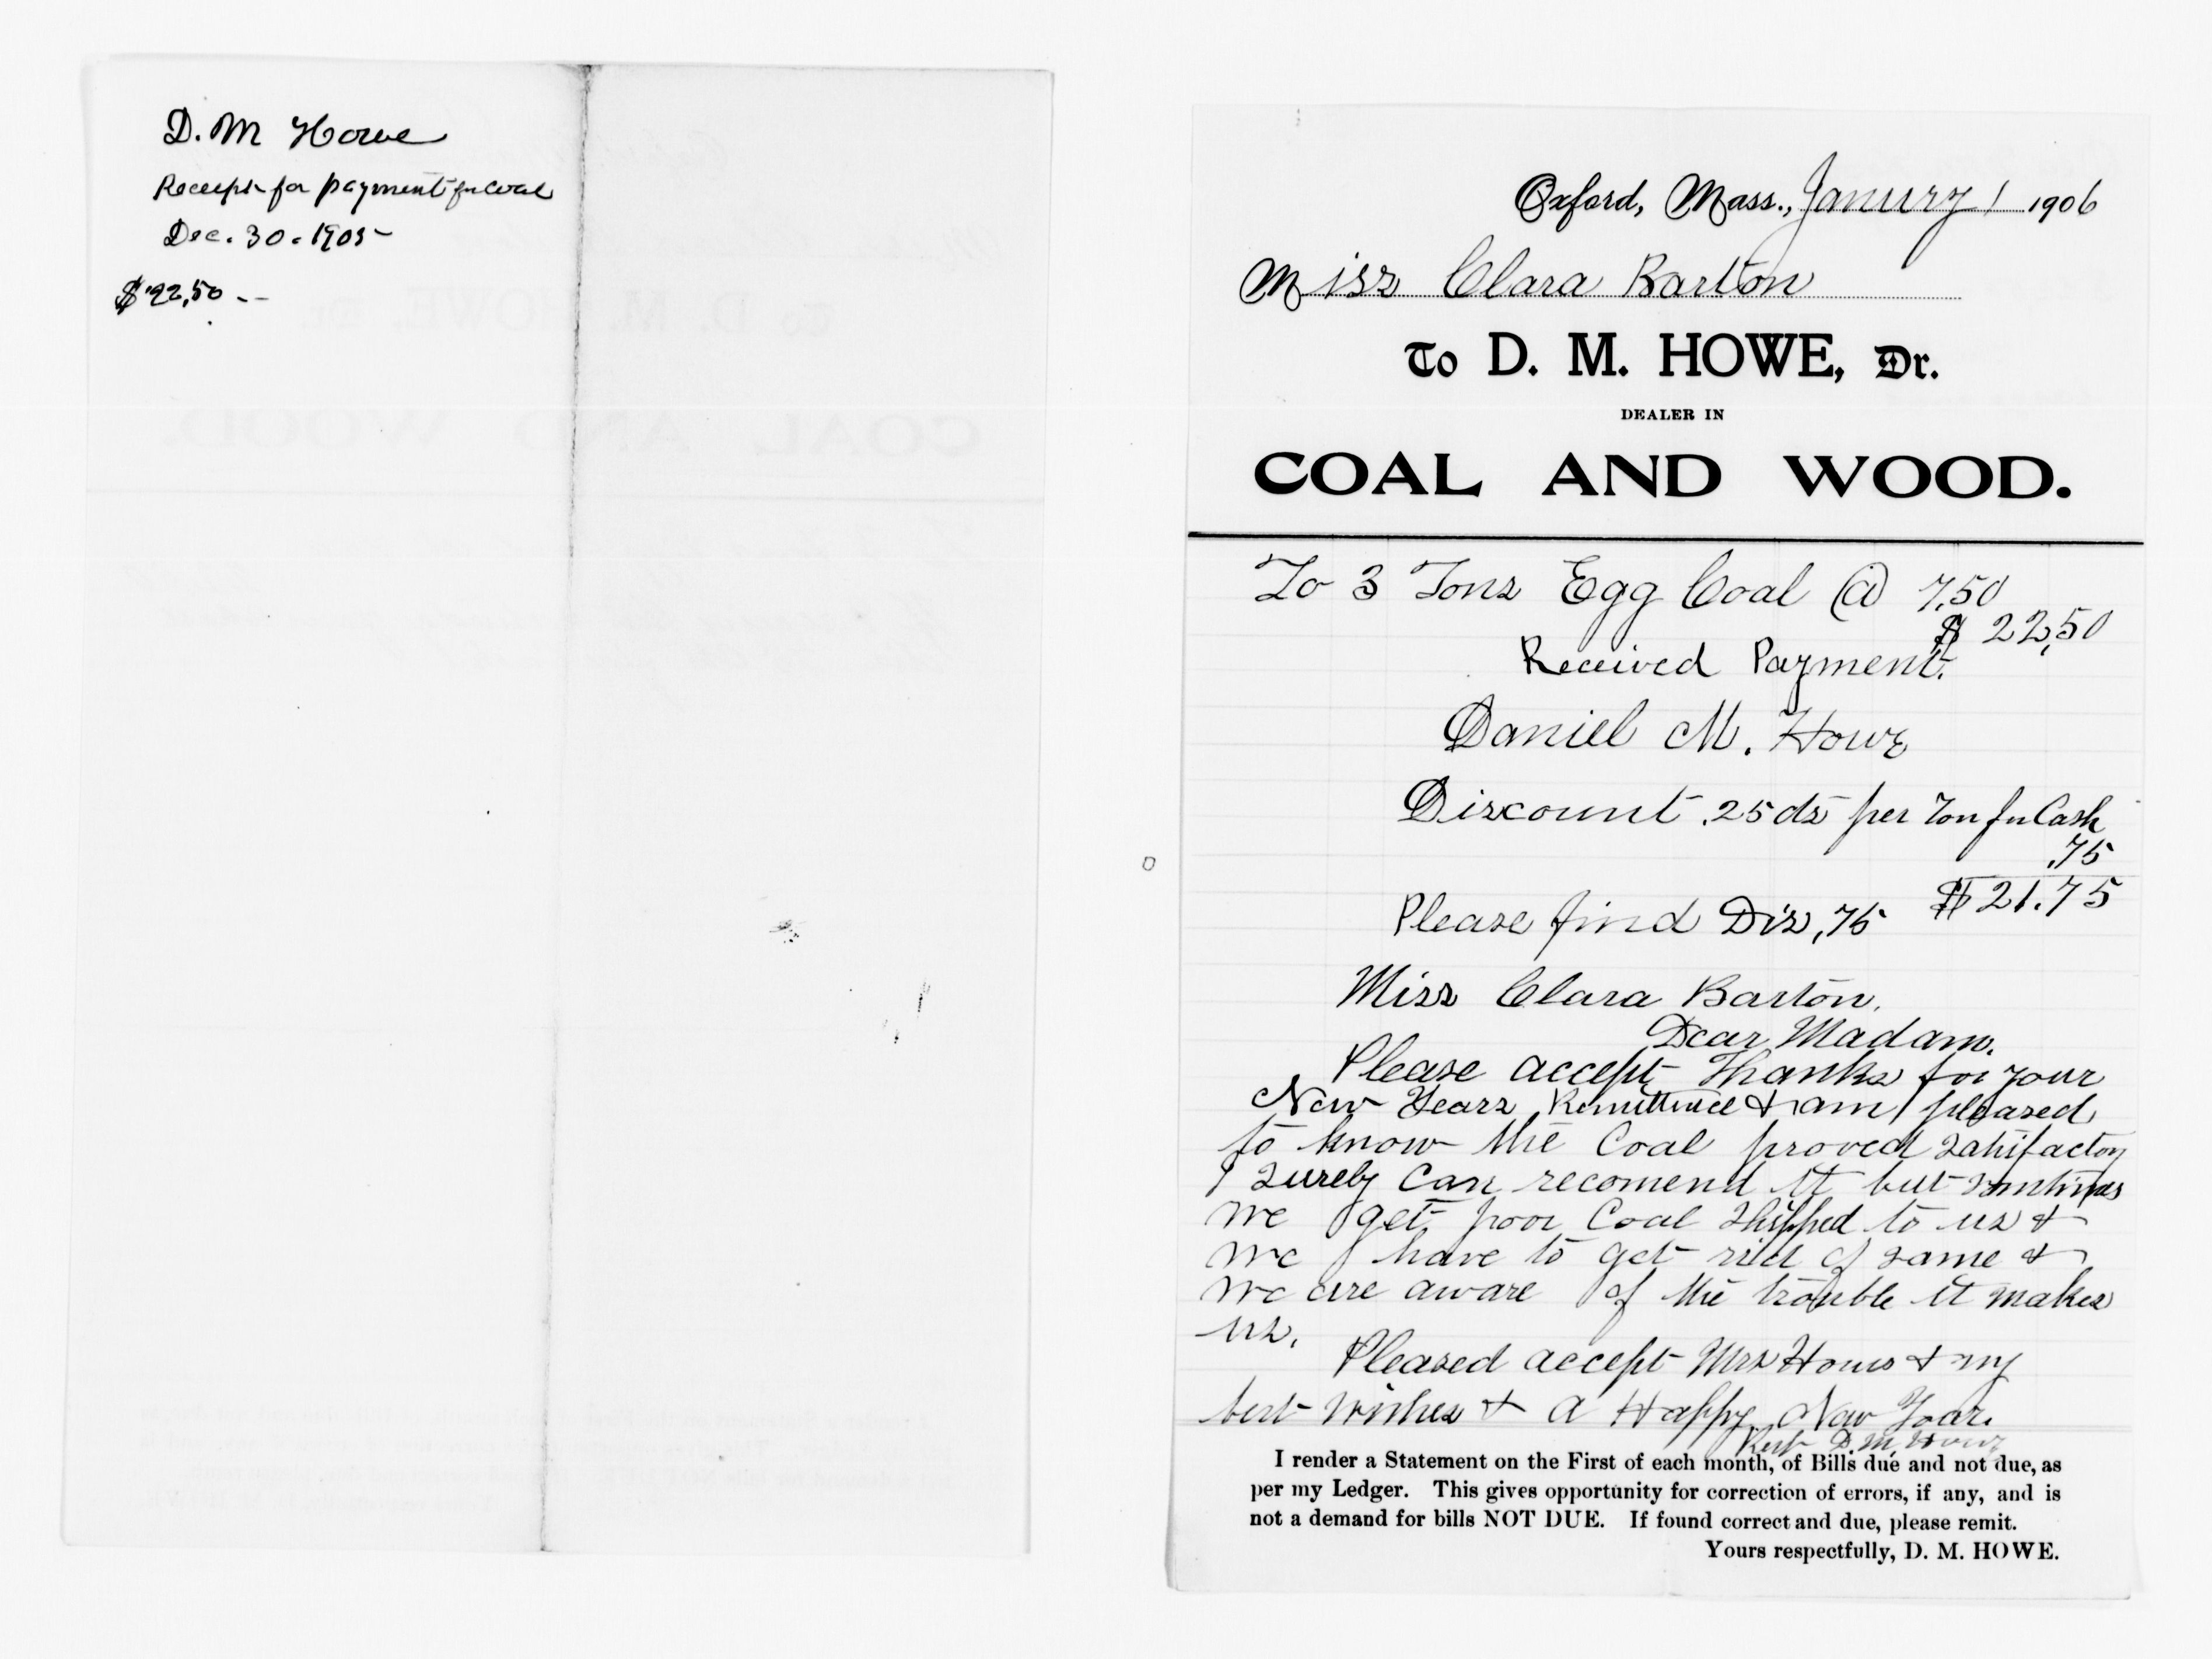 D. M Howe
Receipt for payment for coal
Dec. 30. 1905
$22,50 --
Oxford, Mass., Janury 1 1906
Miss Clara Barton
To D. M. HOWE, Dr.
DEALER IN
COAL AND WOOD.
To 3 Tons Egg Coal @ 7,50
$ 22,50
Received Payment.
Daniel M. Howe
Discount .25 cts per Ton for Cash
,75
$ 21.75
Please find Dis ,75
Miss Clara Barton.
Dear Madam.
Please accept Thanks for your
New Years Remittance & am pleased
to know the Coal proved satisfactory
I surely can recomend it but sometimes
we get poor Coal shipped to us &
we have to get rid of same &
we are aware of the trouble it makes
us.
Pleased accept Mrs Howes & my
best wishes & A Happy New Year.
Rest D. M. Howe
I render a Statement on the First of each month, of Bills due and not due, as
per my Ledger. This gives opportunity for correction of errors, if any, and is
not a demand for bills NOT DUE. If found correct and due, please remit.
Yours respectfully, D. M. HOWE.